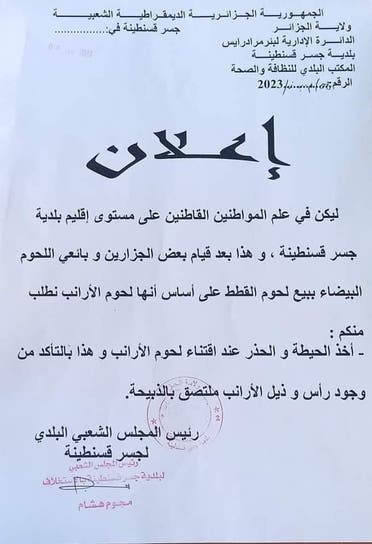 الجمهورية الجزائرية الديمقراطية الشعبية
ولاية الجزائر
جسر قسنطينة في:..................
الدائرة الإدارية لبئرمرادرايس
بلدية جسر قسنطينة
المكتب البلدي للنظافة والصحة
الرقم 2023/
إعلان
ليكن في علم المواطنين القاطنين على مستوى إقليم بلدية
جسر قسنطينة ، و هذا بعد قيام بعض الجزارين و بائعي اللحوم
البيضاء ببيع لحوم القطط على أساس أنها لحوم الأرانب نطلب
منكم :
- أخذ الحيطة و الحذر عند اقتناء لحوم الأرانب و هذا بالتأكد من
وجود رأس و ذيل الأرانب ملتصق بالذبيحة.
رئيس المجلس الشعبي البلدي
لجسر قسنطينة
رئيس المجلس الشعبي
لبلدية جسر قسنطينة بالاستخلاف
هشام